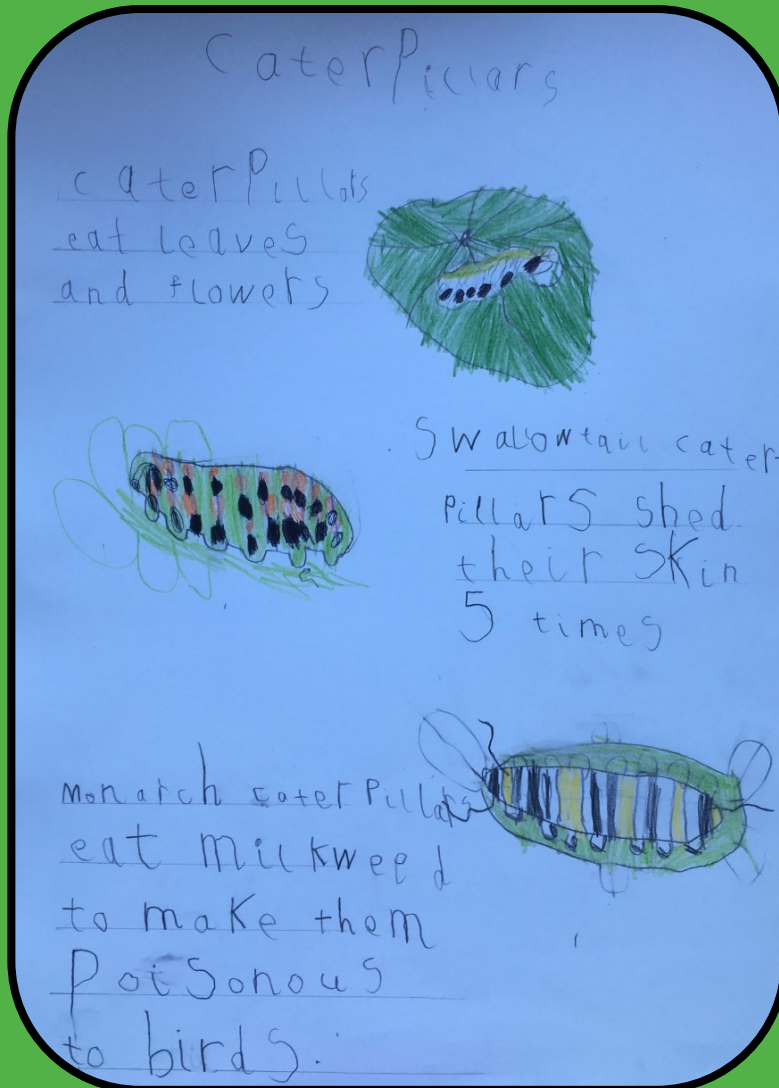 CaterPillars
caterPillars
eat leaves
and flowers
Swalowtail cater-
Pillars shed
their SKin
5 times
Monarch caterPillars
eat milkweed
to make them
Poisonous
to birds.